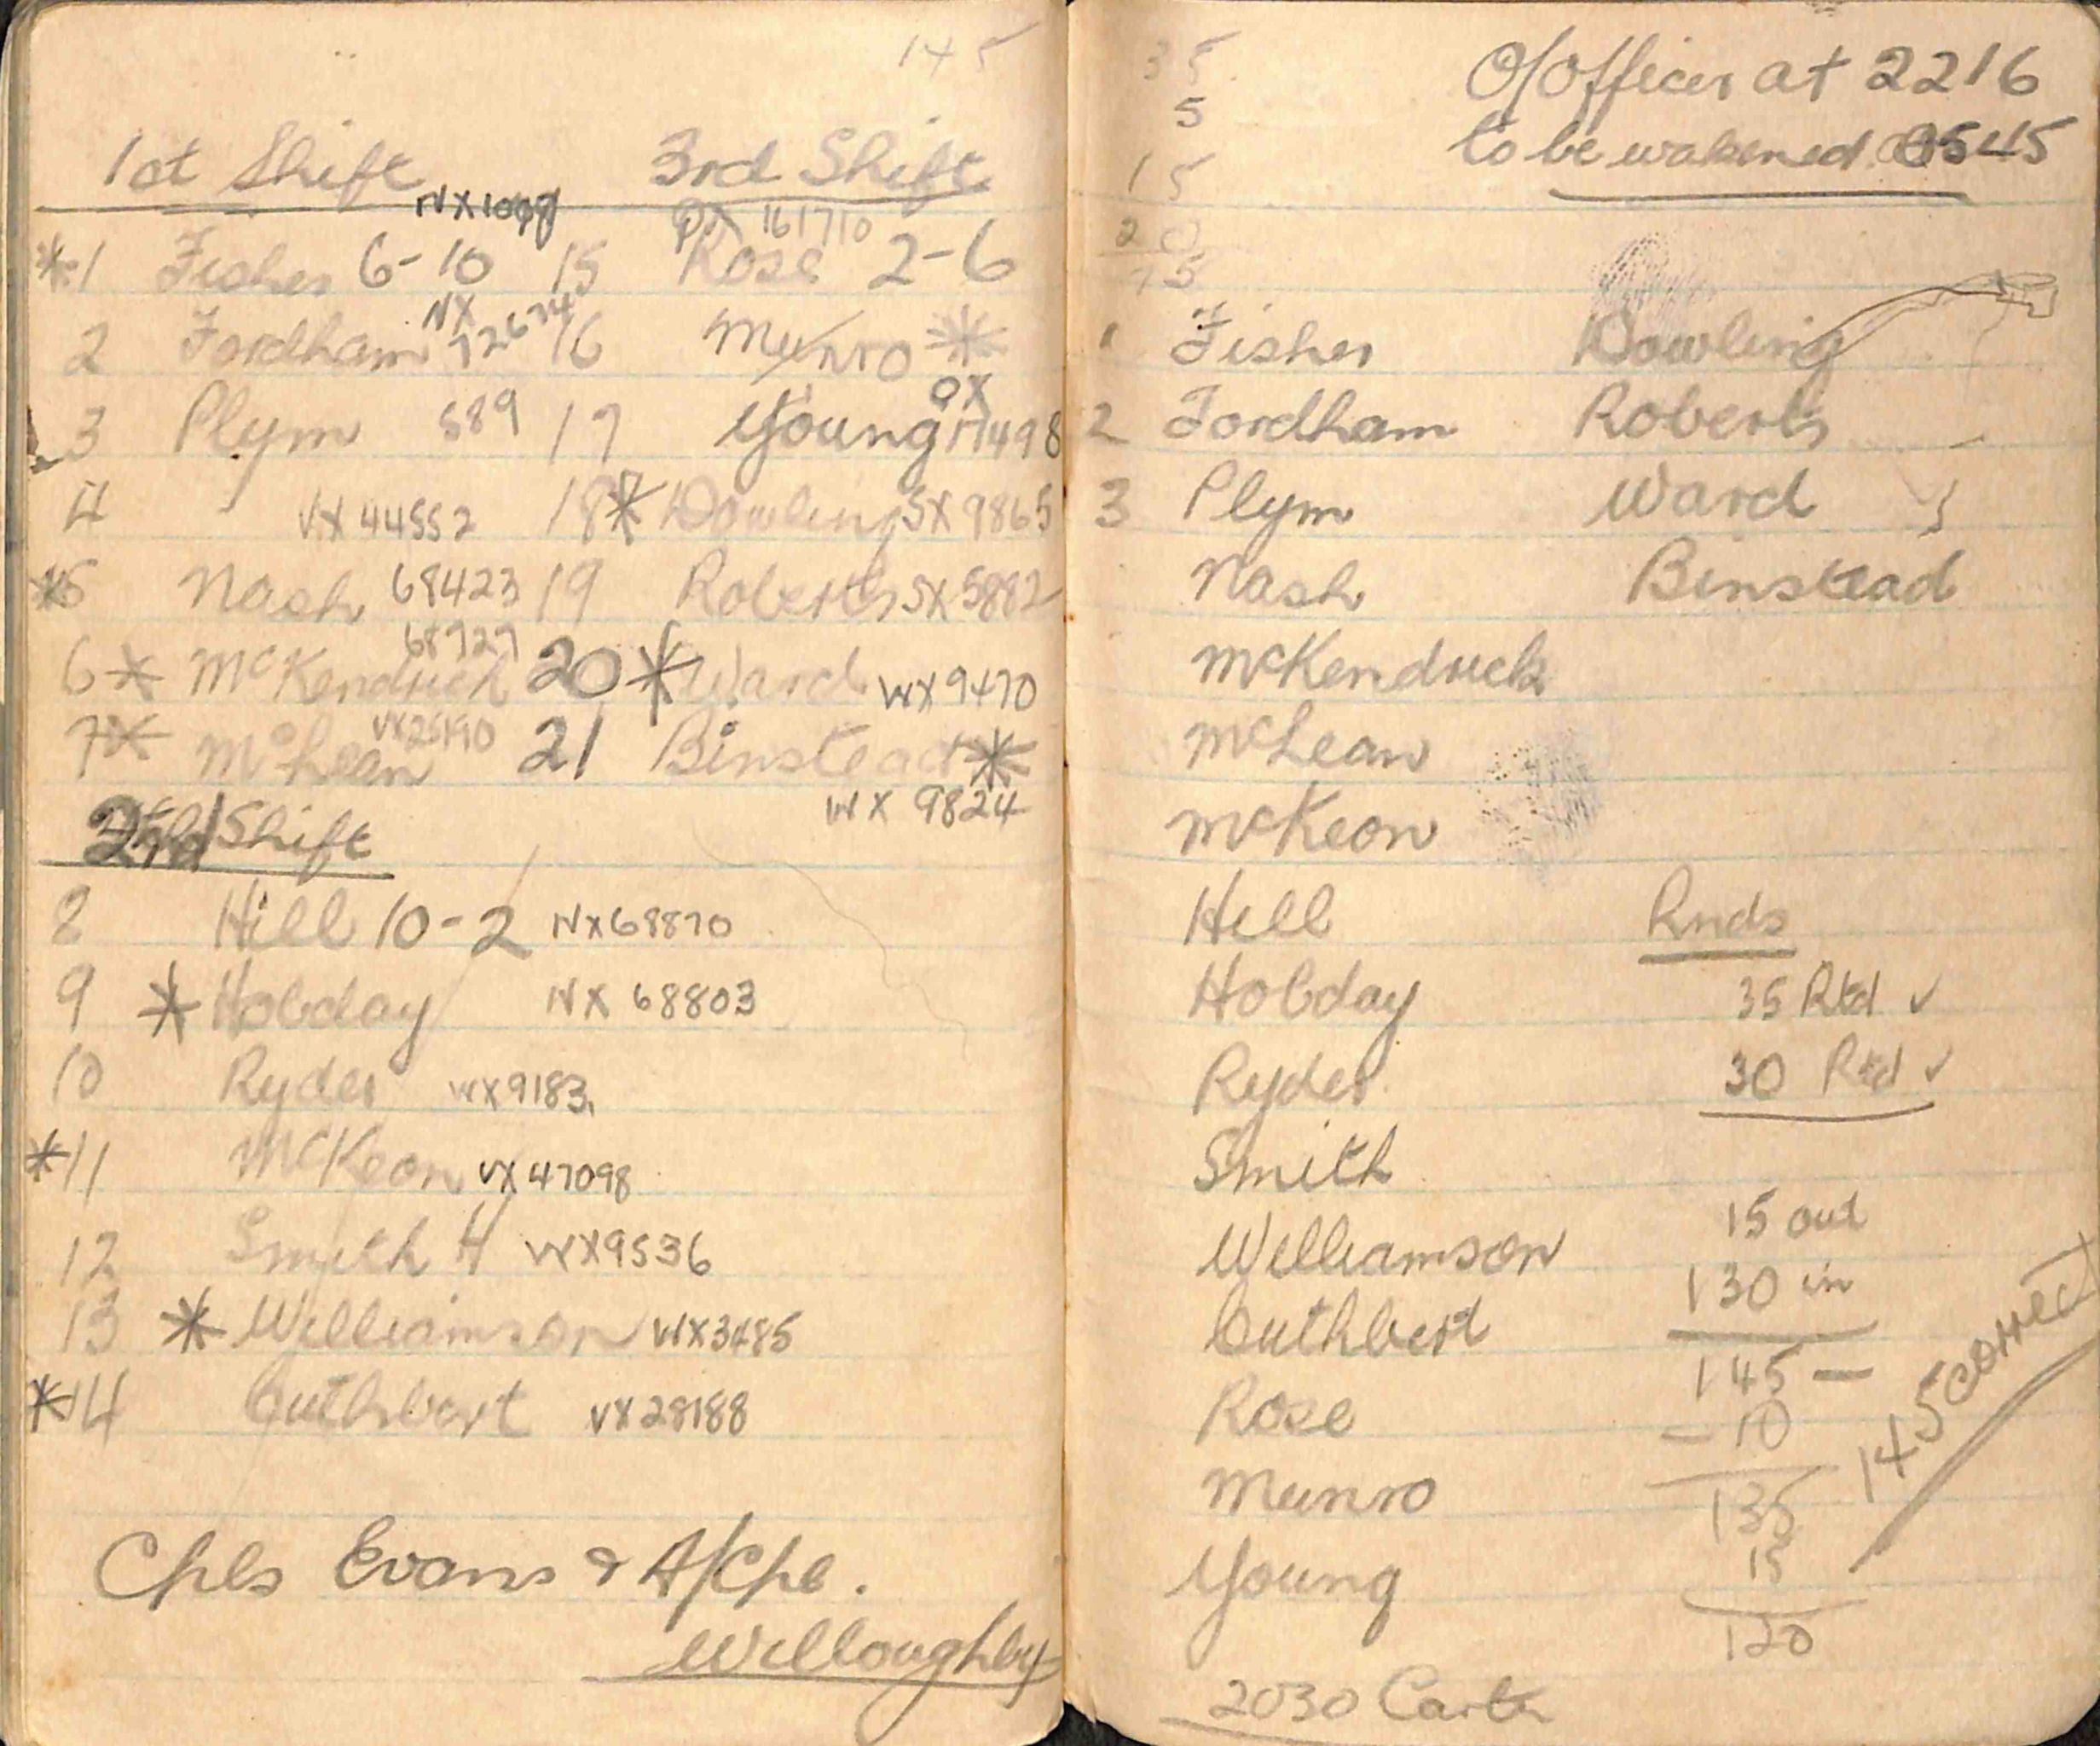 145
1st Shift 3rd Shift
NX1098 QX 161710
*1 Fisher 6-10 15 Rose 2-6
NX
2 Fordham 72674 16 Munro *
QX
3 Plym 589 17 Young 17498
4 VX 44552 18 * Dowling SX 9865
*5 Nash 68423 19 Roberts SX 5882
68727
6 * McKendrick 20 * Ward WX 9470
VX25190
7 * McLean 21 Binstead *
WX 9824
2nd Shift
8 Hill 10-2 NX68870
9 * Hobday NX 68803
10 Ryder WX9183
*11 McKeon VX 47098
12 Smith H WX9536
13 * Williamson WX3485
*14 Cuthbert VX28188
Cpls Evans & A/Cpl.
Willoughby
35
5
15
20
75
O/Officer at 2216
to be wakened 0545
1 Fisher Dowling
2 Fordham Roberts
3 Plym Ward
Nash Binstead
McKendrick
McLean
McKeon
Hill Rnds
Hobday 35 Rtd ✓
Ryder 30 Rtd ✓
Smith
15 out
Williamson
130 in
Cuthbert
145 —
Rose - 10
145 correct
Munro 135
15
Young
120
2030 Carts